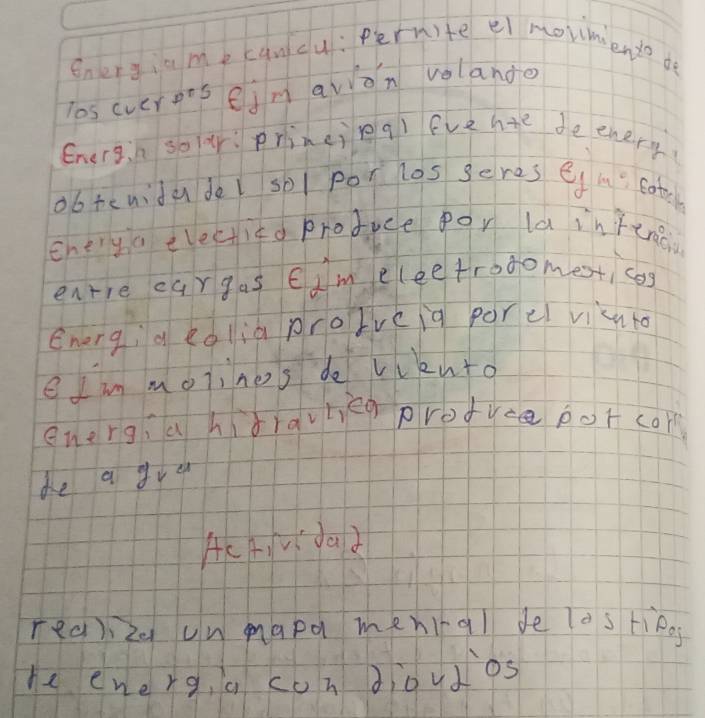 Energia mecanica: Permite el movimiento de
los cuerpos Ejm avión volando
Energia solar: principal fuente de energi
obtenida del sol por los seres Ejm:
Energia electica produce por la interacciu
entre cargas Ejm eleetrodomesticos
Energia eolia produeia por el viento
ejm molinos de viento
energia hidraulica produce por corr
de agua
Actividad
realiza un mapa mental de los tipos
de energia con dibujos